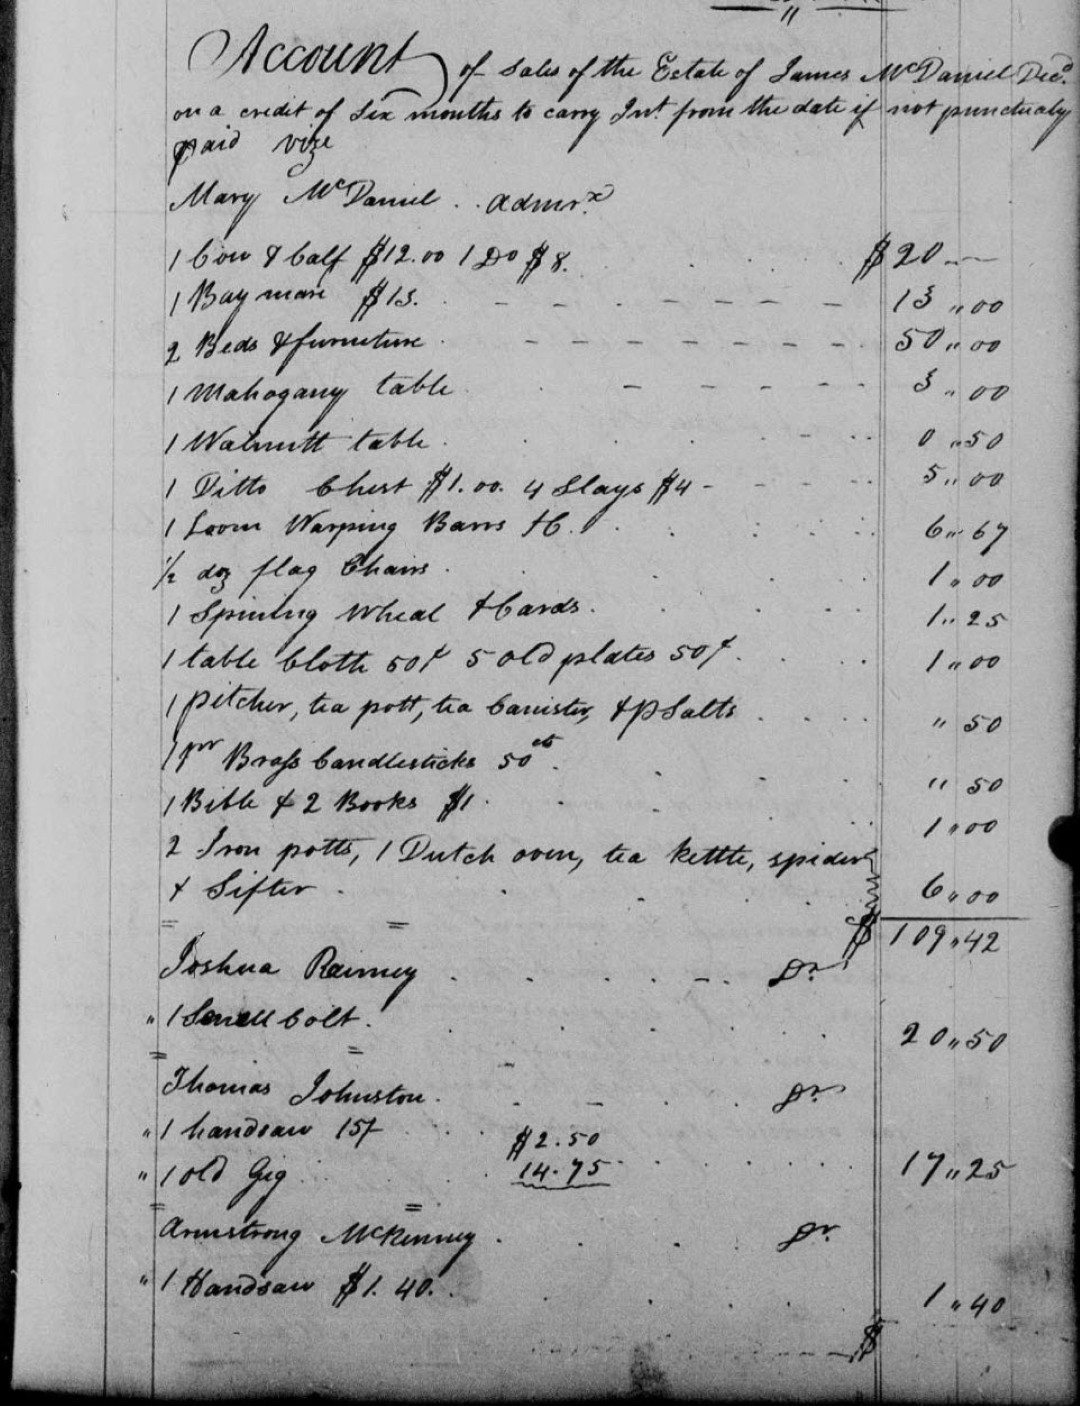 Account of Sales of the Estate of James McDaniel Decd.
on a credit of Six months to carry Int. from the date if not punctualy
paid vize
Mary McDaniel . . Admrx
1 Cow & Calf $12.00 1 Do $8. $20
1 Bay mare $13. 13 " 00
2 Beds & furneture 50 " 00
1 Mahogany table 3 " 00
1 Walnutt table 0 " 50
1 Ditto Chest $1.00. 4 Slays $4 5 " 00
1 Loom Warping Barrs &C. 6 " 67
1/2 doz flag Chairs 1 " 00
1 Spining Wheal & Cards 1 " 25
1 table Cloth 50¢ 5 old plates 50¢ 1 " 00
1 pitcher, tea pott, tea Canister, & p Salts " 50
1 pr Brass Candlesticks 50 cts " 50
1 Bible & 2 Books $1 1 " 00
2 Iron potts, 1 Dutch oven, tea kettle, spider
& Sifter 6 " 00
$ 109 " 42
Joshua Rainey Dr
" 1 Colt 20 " 50
Thomas Johnston Dr
" 1 handsaw $2.50
" 1 old Gig 14.75 17 " 25
Armstrong McKenney Dr
" 1 Handsaw $1.40 1 " 40
$